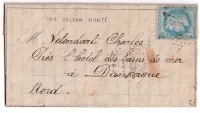 PAR BALLON MONTÉ
M. Vetendart Charles
Près l'hotel des bains de mer
à Dunkerque
Nord.